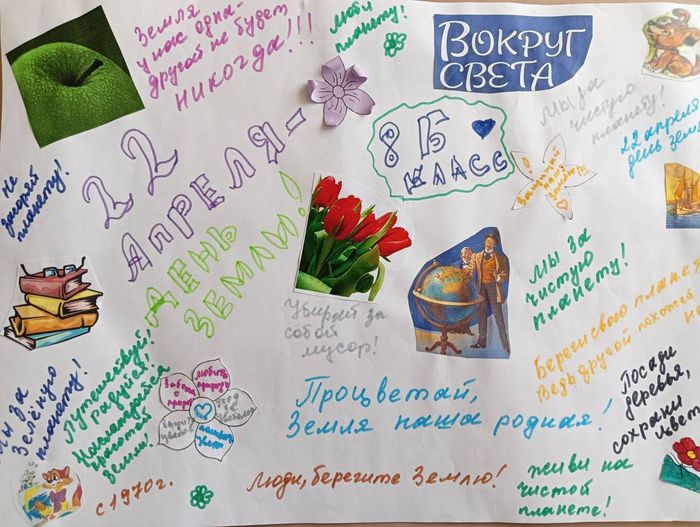 Земля
у нас одна-
другой не будет
никогда!!!
Люби
планету!
ВОКРУГ
СВЕТА
Мы за
чистую
планету!
22 апреля
день Земли
8 Б
КЛАСС
Защищай
нашу
Землю!!
Не
засоряй
планету!
22
АПРЕЛЯ-
ДЕНЬ
ЗЕМЛИ!
Убирай за
собой
мусор!
Мы за
чистую
планету!
Береги свою планет
Ведь другой похожей
не
Посади
деревья,
сохрани
цве
Мы за
Зелёную
планету!
Путешествуй,
радуйся,
Наслаждайся
красотой
Земли!
Забота
о
природе
Любить
природу
Процветай,
Земля наша родная!
с 1970г.
Люди, берегите Землю!
Живи на
чистой
планете!